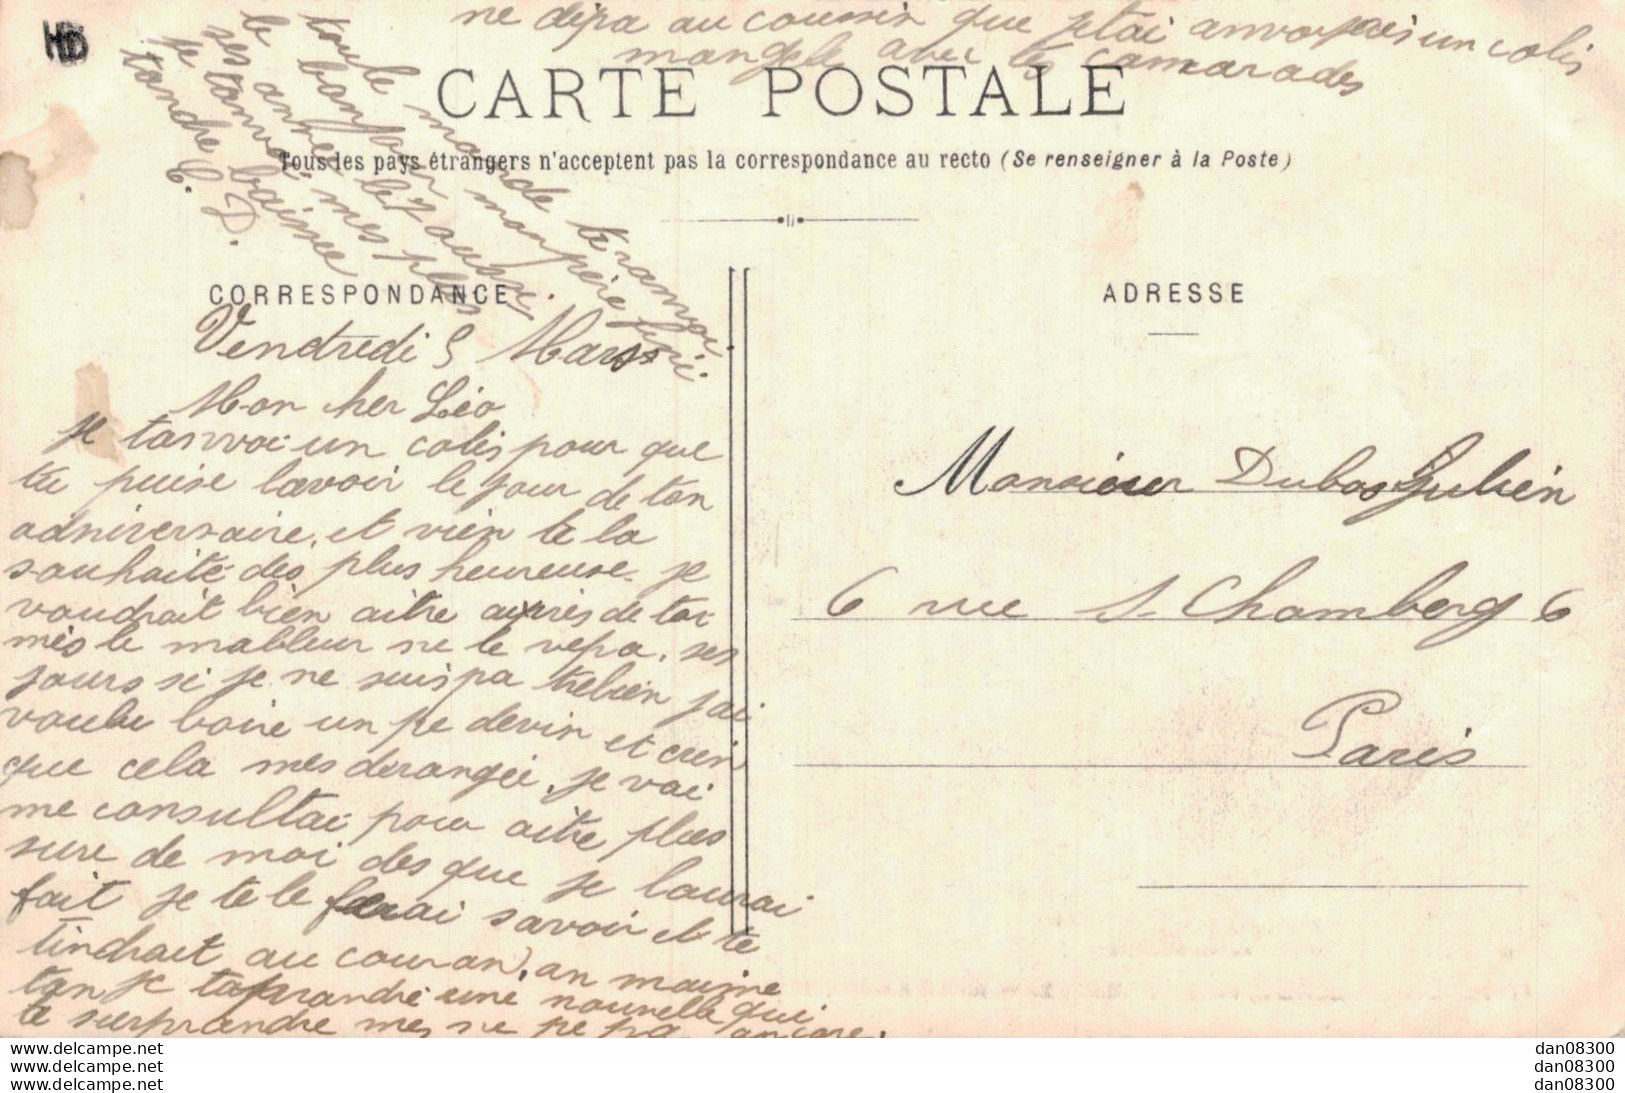 HB
ne dipa au coussin que jetai anvoyer un colis
mangele avec tes camarades
CARTE POSTALE
Tous les pays étrangers n'acceptent pas la correspondance au recto (Se renseigner à la Poste)
toule monde te ranvoi
le bonjour mon père fini
ses année le 7 ou
je tanvoi mes plus
tandre baissee
C. D.
CORRESPONDANCE
Vendredi 5 Mars
Mon cher Léo
je tanvoi un colis pour que
tu puise lavoir le jour de ton
adniversaire, et vien te la
souhaité des plus heureuse. je
voudrait bien aitre auprès de toi
mès le malleur ne le vepa. ses
jours si je ne suis pa trebien jai
voulu boire un pe devin et crein
que cela mes derangée. je vai
me consultai pour aitre plus
sure de moi des que je laurai
fait je te le ferai savoir et te
tindrait au couran, an maime
tan je taprandré une nouvelle qui
te surprandre mes ne pe pa ancore.
ADRESSE
Monsieur Dubos Julien
6 rue S. Chamberg 6
Paris
www.delcampe.net
www.delcampe.net
www.delcampe.net
dan08300
dan08300
dan08300